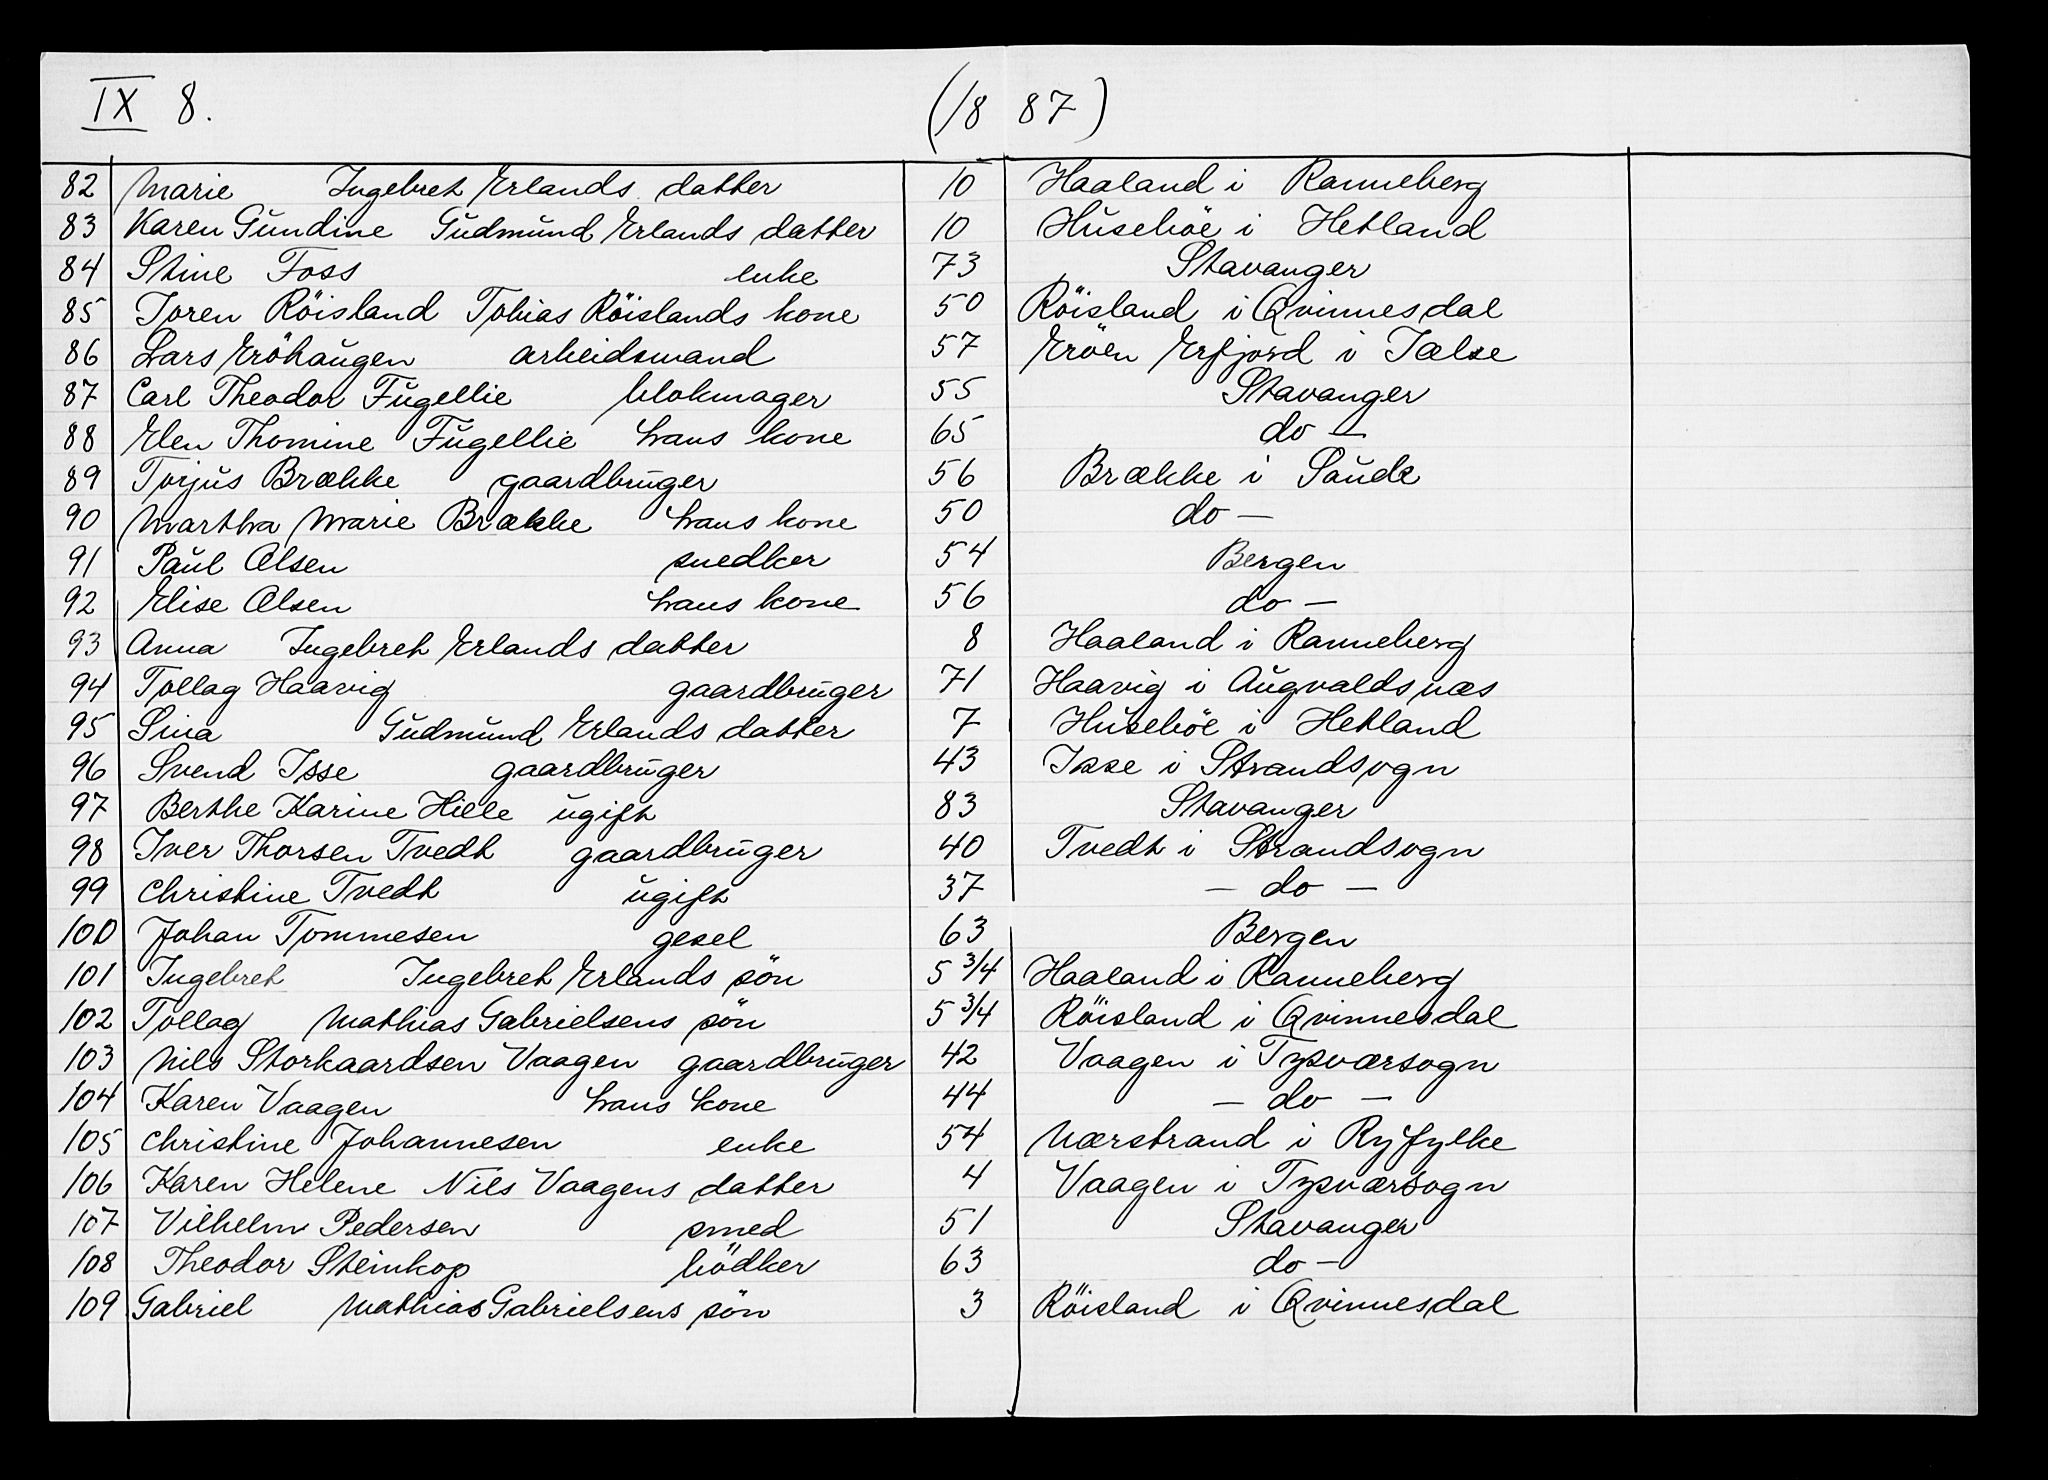 IX 8. (18 87)
82 Marie Ingebret Erlands datter 10 Haaland i Ranneberg
83 Karen Gŭndine Gŭdmŭnd Erlands datter 10 Hŭseböe i Hetland
84 Stine Foss enke 73 Stavanger
85 Joren Röisland Tobias Röislands kone 50 Röisland i Qvinnesdal
86 Lars Eröhaŭgen arbeidsmand 57 Eröen Erfjord i Jælse
87 Carl Theodor Fŭgellie blokmager 55 Stavanger
88 Elen Thomine Fŭgellie hans kone 65 do —
89 Torjŭs Brække gaardbrŭger 56 Brække i Saŭde
90 Martha Marie Brække hans kone 50 do —
91 Paŭl Olsen snedker 54 Bergen
92 Elise Olsen hans kone 56 do —
93 Anna Ingebret Erlands datter 8 Haaland i Ranneberg
94 Tollag Haavig gaardbrŭger 71 Haavig i Aŭgvaldsnæs
95 Sina Gŭdmŭnd Erlands datter 7 Hŭseböe i Hetland
96 Svend Isse gaardbrŭger 43 Isse i Strandsogn
97 Berthe Karine Hille ugift 83 Stavanger
98 Iver Thorsen Tvedt gaardbrŭger 40 Tvedt i Strandsogn
99 Christine Tvedt ugift 37 — do —
100 Johan Tommesen gesel 63 Bergen
101 Ingebret Ingebret Erlands sön 5 3/4 Haaland i Ranneberg
102 Tollag Mathias Gabrielsens sön 5 3/4 Röisland i Qvinnesdal
103 Nils Storkaardsen Vaagen gaardbrŭger 42 Vaagen i Tysværsogn
104 Karen Vaagen hans kone 44 — do —
105 Christine Johannesen enke 54 Nærstrand i Ryfylke
106 Karen Helene Nils Vaagens datter 4 Vaagen i Tysværsogn
107 Vilhelm Pedersen smed 51 Stavanger
108 Theodor Steinkop bödker 63 do —
109 Gabriel Mathias Gabrielsens sön 3 Röisland i Qvinnesdal